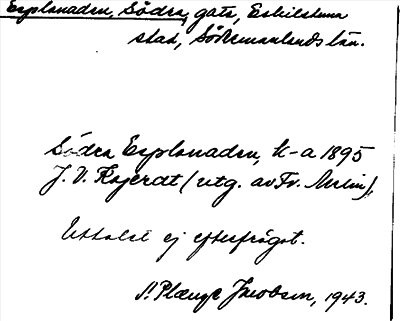 Esplanaden, Södra, gata, Eskilstuna
stad, Södermanlands län.
Södra Esplanaden, K-a 1895
J. V. (utg. av Fr.
Uttalet ej efterfrågat.
Jacobsen, 1943.